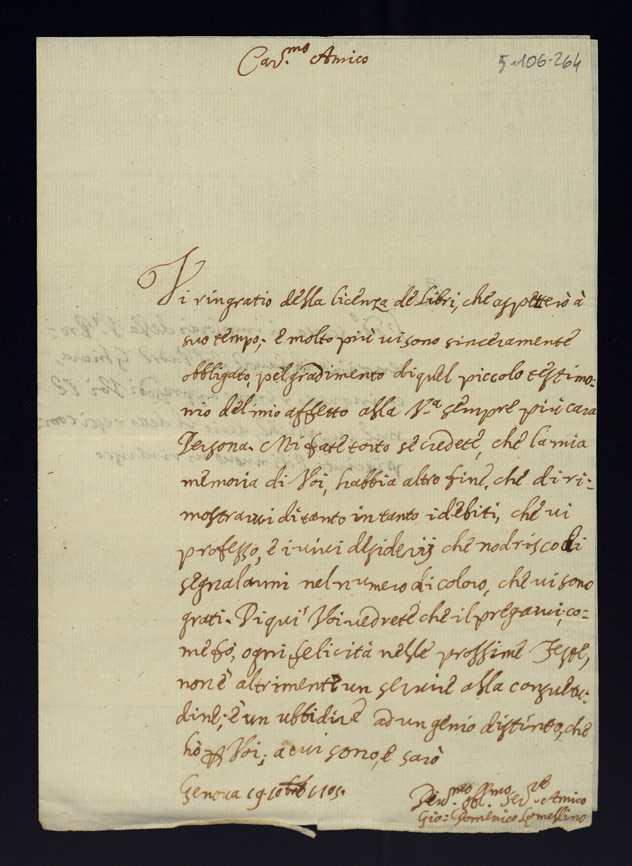 Car.mo Amico
5-106-264
Vi ringratio della licenza de Libri, che aspetterò à
suo tempo; e molto più vi sono sinceramente
obbligato pel gradimento di quel piccolo testimo=
nio del mio affetto alla V.a sempre più cara
Persona. Mi fate torto se credete, che la mia
memoria di Voi, habbia altro fine, che di ri=
mostrarvi di tanto in tanto i debiti, che vi
professo, e i vivi desiderij che nodrisco di
segnalarmi nel numero di coloro, che vi sono
grati. Di qui Voi vedrete che il pregarvi, co=
me fò, ogni felicità nelle prossime Feste,
non è altrimente un servire alla consuetu=
dine; è un ubbidire ad un genio distinto, che
hò p Voi; a cui sono, e sarò
Genova 19 10bre 1705.
Dev.mo Obl.mo Ser.re Amico
Gio: Domenico Lomellino